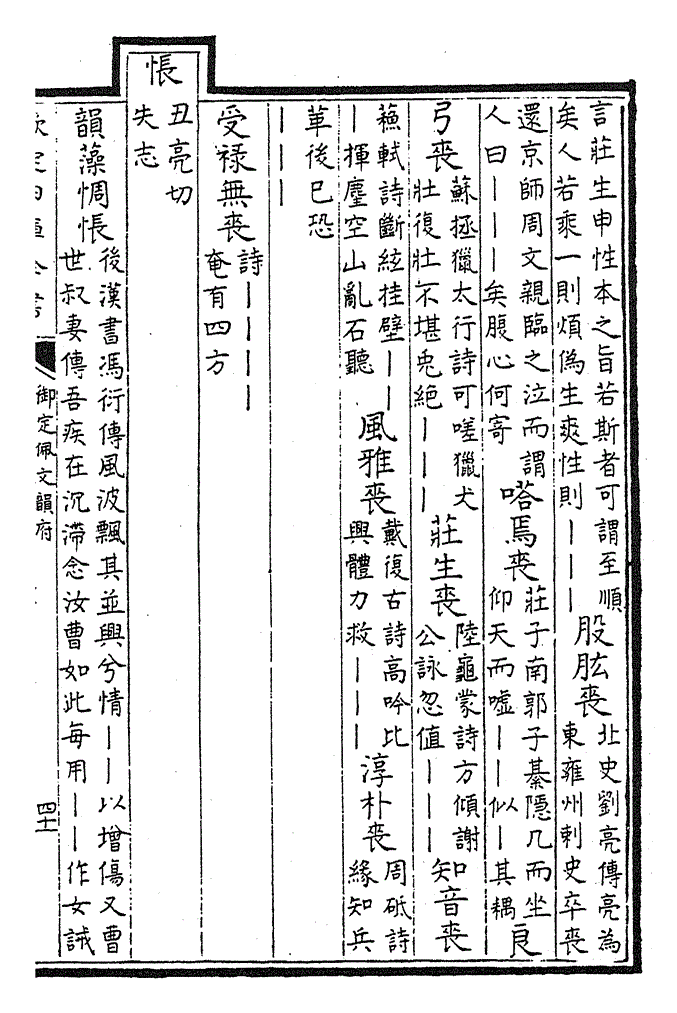 言莊生申性本之旨若斯者可謂至順
矣人若乘一則煩偽生爽性則｜｜｜
股肱喪
北史劉亮傳亮為
東雍州刺史卒喪
還京師周文親臨之泣而謂
人曰｜｜｜矣腹心何寄
嗒焉喪
莊子南郭子綦隱几而坐
仰天而噓｜｜似｜其耦
良弓喪
蘇拯獵太行詩可嗟獵犬
壯復壯不堪兎絕｜｜｜
莊生喪
陸龜蒙詩方傾謝
公詠忽值｜｜｜
知音喪
蘇軾詩斷絃挂壁｜｜
｜揮麈空山亂石聽
風雅喪
戴復古詩高吟比
興體力救｜｜｜
淳朴喪
周砥詩
緣知兵
革後已恐
｜｜｜
受禄無喪
詩｜｜｜｜
奄有四方
悵
丑亮切
失志
韻藻惆悵
後漢書馮衍傳風波飄其並興兮情｜｜以增傷又曹
世叔妻傳吾疾在沉滯念汝曹如此每用｜｜作女誡
欽定四庫全書
御定佩文韻府
四十一